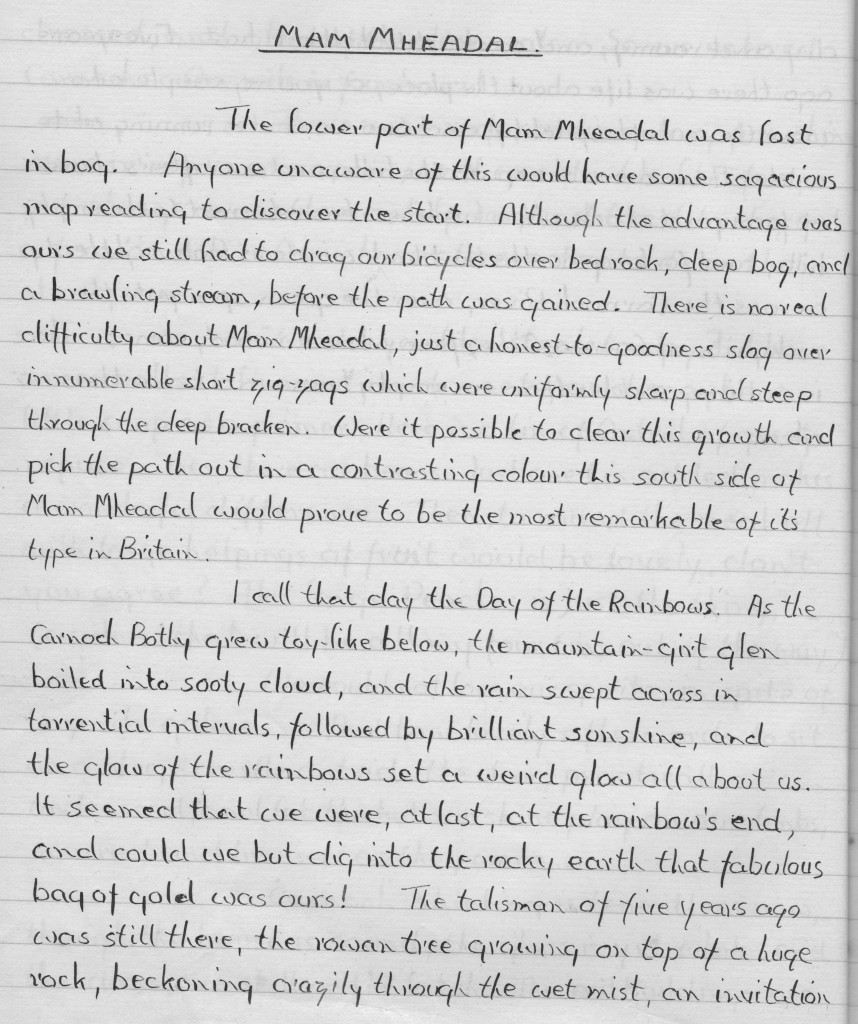 MAM MHEADAL.
The lower part of Mam Mheadal was lost
in bog. Anyone unaware of this would have some sagacious
map reading to discover the start. Although the advantage was
ours we still had to drag our bicycles over bedrock, deep bog, and
a brawling stream, before the path was gained. There is no real
difficulty about Mam Mheadal, just a honest-to-goodness slog over
innumerable short zig-zags which were uniformly sharp and steep
through the deep bracken. Were it possible to clear this growth and
pick the path out in a contrasting colour this south side of
Mam Mheadal would prove to be the most remarkable of it's
type in Britain.
I call that day the Day of the Rainbows. As the
Carnoch Bothy grew toy-like below, the mountain-girt glen
boiled into sooty cloud, and the rain swept across in
torrential intervals, followed by brilliant sunshine, and
the glow of the rainbows set a weird glow all about us.
It seemed that we were, at last, at the rainbow's end,
and could we but dig into the rocky earth that fabulous
bag of gold was ours! The talisman of five years ago
was still there, the rowan tree growing on top of a huge
rock, beckoning crazily through the wet mist, an invitation